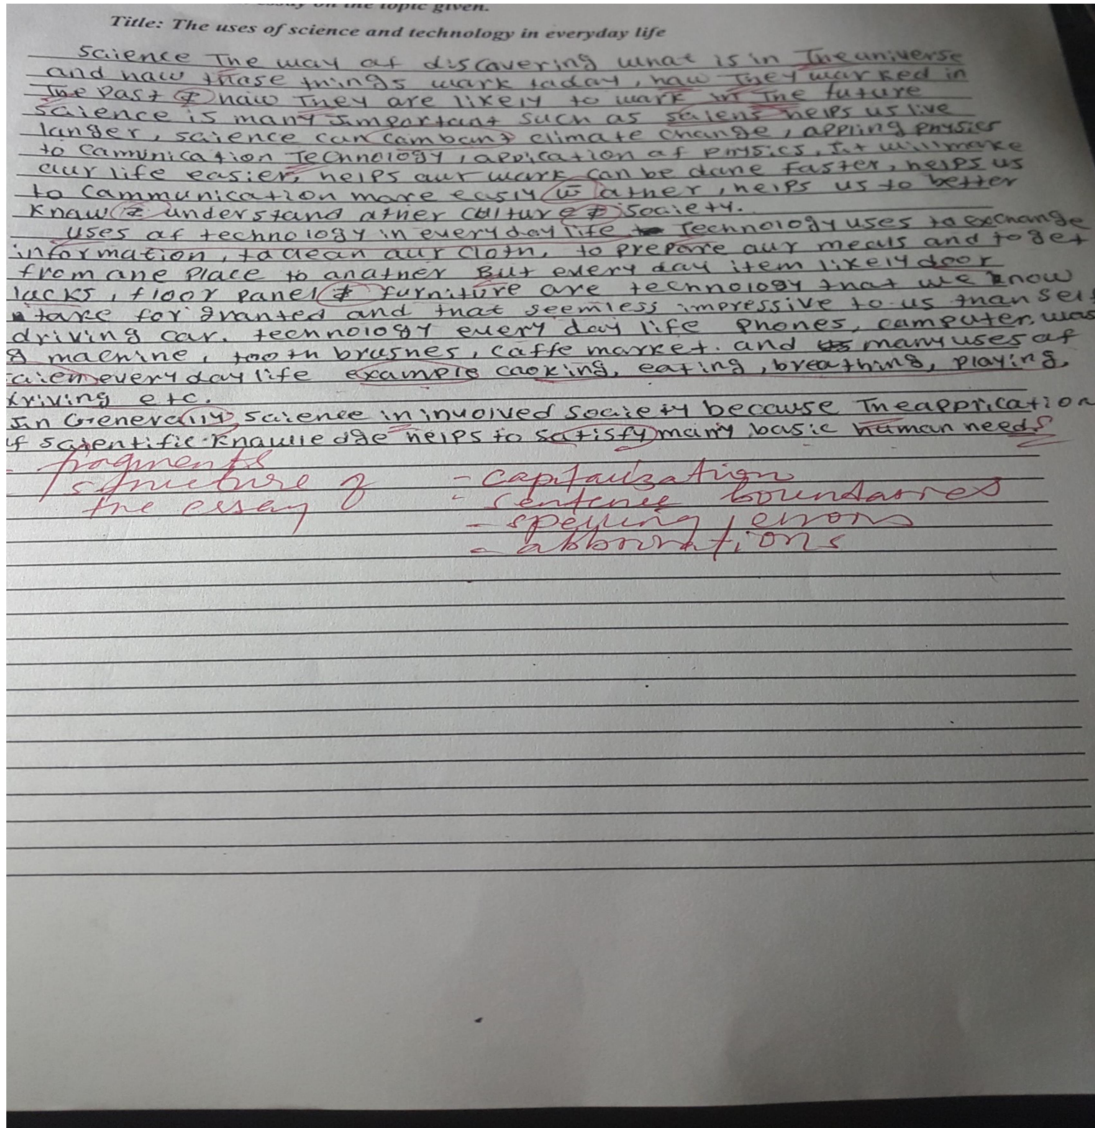 essay on the topic given.
Title: The uses of science and technology in everyday life
Sciience The way af discavering what is in Theaniverse
and haw thase things wark taday, haw They warked in
The Past & haw They are likely to wark in The future
science is many Important such as sciens helps us live
langer, science can cambant climate change, appling physics
to camunication Technology, appication af physics, It willmake
aur life easier, helps aur wark can be dane faster, helps us
to cammunication mare easly w ather, helps us to better
Knaw & understand ather culture & society.
uses af technology in everyday life Technology uses ta exchange
information, ta clean aur cloth, to prepare aur meals and to get
from ane place to anather But every day item likely door
lacks, floor panel & furniture are technology that we know
take for granted and that seemless impressive to us than sel
driving car. technology every day life phones, camputer, was
g machine, tooth brushes, caffe market. and manyuses af
cien everyday life example caoking, eating, breathing, playing,
driving etc.
In Generally, science in invoived society because Theapprication
f scientific Knawledge helps to satisfy many basic human needs
- fragments
structure of
the essay
- capitalization
- sentence boundarres
- spelling errors
- abbreviations